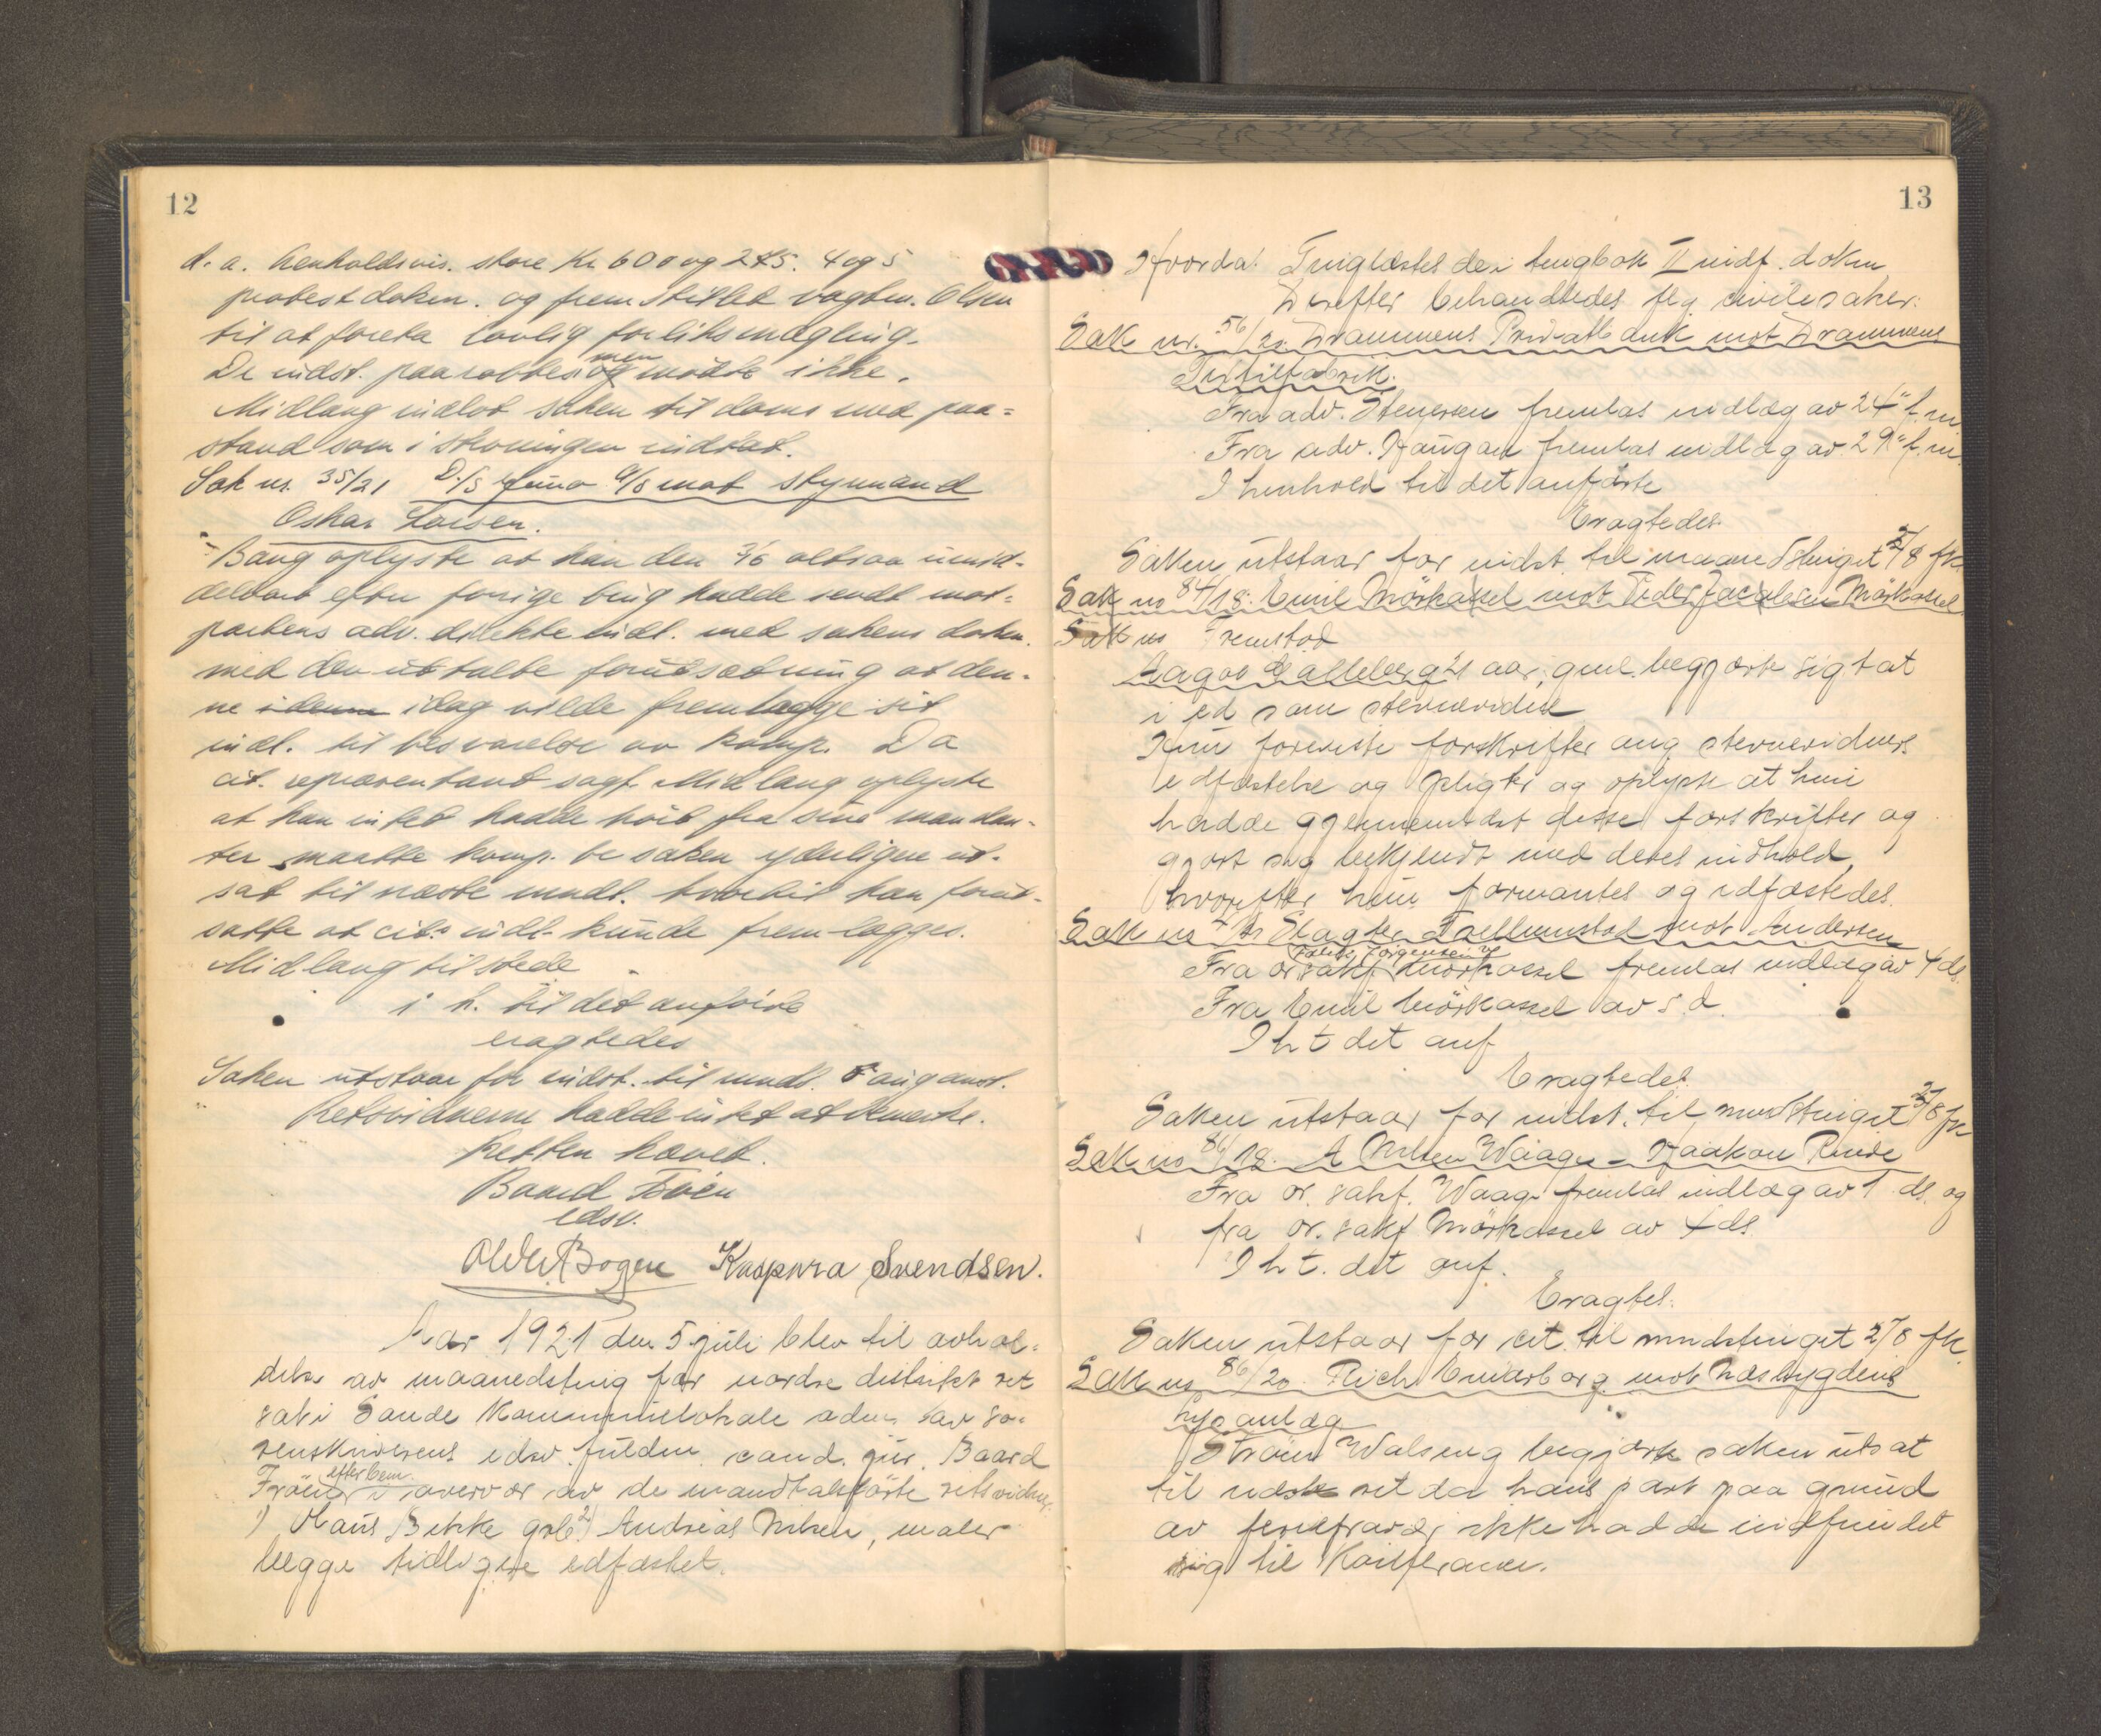 12
d. a. henholdsvis. store Kr 600 og 275. 4 og 5
protestdoken. og fremstillet vagtm. Olsen
til at foreta lovlig forliksmægling.
De indst. paaroptes men møtte ikke.
Midlang indlot saken til doms med paa=
stand som i stevningen indtat.
Sak nr. 35/21 D/S Juno A/S mot styrmand
Oskar Larsen.
Bang oplyste at han den 7/6 altsaa umid-
delbart efter forrige ting hadde sendt mot=
partens adv. direkte indl. med sakens doken.
med den uttalte forutsætning at den-
ne idenne idag vilde fremlægge sit
indl. til besvarelse av komp. Da
cit. repræsentant sagf. Midlang oplyste
at han intet hadde hørt fra sine mandan-
ter maatte komp. be saken yderligere ut-
sat til næste mndt. hvortil han forut-
satte at cit.s indl. kunde fremlægges.
Midlang tilstede
i h. til det anførte
eragtedes
Saken utstaar for indst. til mndt. i august.
Retsvidnerne hadde intet at bemerke.
Retten hævet.
Baard Frøen
edsv.
Bogen Kaspara Svendsen.
Aar 1921 den 5 juli blev til avhol=
delse av maanedsting for nordre distrikt ret
sat i Sande Kommunelokale adm. av so-
renskriverens edsv. fuldm. cand. jur. Baard
Frøen efter bem. i overvær av de mandtalsførte retsvidner
1) Hans Bekke grb. 2) Andreas Nilsen, maler
begge tidligere edfæstet.
13
Hvorda! Tinglæstes de i tingbok II indf. doken
Derefter behandledes flg. civile saker:
Sak nr. 56/20. Drammens Privatbank mot Drammens
Textilfabrik.
Fra adv. Stenersen fremlas indlæg av 24" f.m.
Fra adv. Haugan fremlas indlæg av 29" f.m.
I henhold til det anførte
Eragtedes.
Saken utstaar for indst. til maanedstinget 2/8 fk.
Sak nr 84/18. Emil Mörkassel mot Peder Jacobsen Mörkassel
Sak nr Fremstod
Aagot Galleberg 21 aar, begjærte sig tat
i ed som stevnevidne
Hun foreviste forskrifter ang. stevnevidners
edfæstelse og pligter og oplyste at hun
hadde gjennemlæst disse forskrifter og
gjort sig bekjendt med deres indhold,
hvorefter hun formantes og edfæstedes.
Sak nr Slagter Tællumstad mot Andersen
Fra or sakf. Jörgensen Mörkassel fremlas indlæg av 4 ds.
Fra Emil Mörkassel av s. d.
I h t det anf
Eragtedes.
Saken utstaar for indst. til mndstinget 2/8 fk
Sak nr 86/18. A Nilsen Waage - Haakon Rinde
Fra or. sakf. Waage fremlas indlæg av 1 ds. og
fra or. sakf Mörkassel av 4 ds
I h t. det anf.
Eragtet.
Saken utstaar for cit. til mndstinget 2/8 fk.
Sak nr 86/20. Rich. mot Næsbygdens
lysanlæg
Walseng begjærte saken utsat
til næste ret da hans part paa grund
av feriefravær ikke hadde indfundet
sig til Konferance.